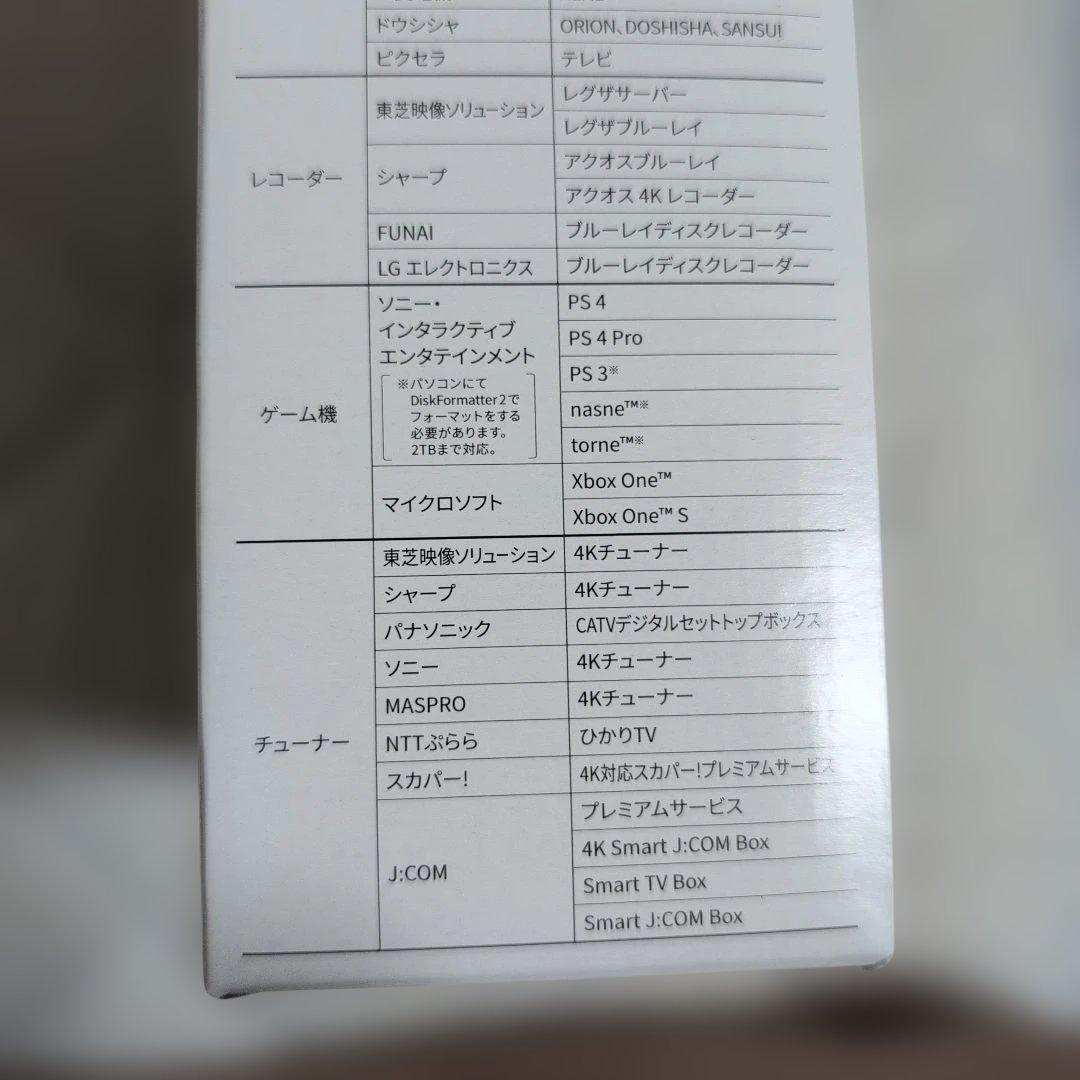 ドウシシャ ORION、DOSHISHA、SANSUI
ピクセラ テレビ
レコーダー
東芝映像ソリューション
レグザサーバー
レグザブルーレイ
シャープ
アクオスブルーレイ
アクオス 4K レコーダー
FUNAI ブルーレイディスクレコーダー
LG エレクトロニクス ブルーレイディスクレコーダー
ゲーム機
ソニー・
インタラクティブ
エンタテインメント
※パソコンにて
DiskFormatter2で
フォーマットをする
必要があります。
2TBまで対応。
PS 4
PS 4 Pro
PS 3※
nasne™※
torne™※
マイクロソフト
Xbox One™
Xbox One™ S
チューナー
東芝映像ソリューション 4Kチューナー
シャープ 4Kチューナー
パナソニック CATVデジタルセットトップボックス
ソニー 4Kチューナー
MASPRO 4Kチューナー
NTTぷらら ひかりTV
スカパー! 4K対応スカパー!プレミアムサービス
J:COM
プレミアムサービス
4K Smart J:COM Box
Smart TV Box
Smart J:COM Box